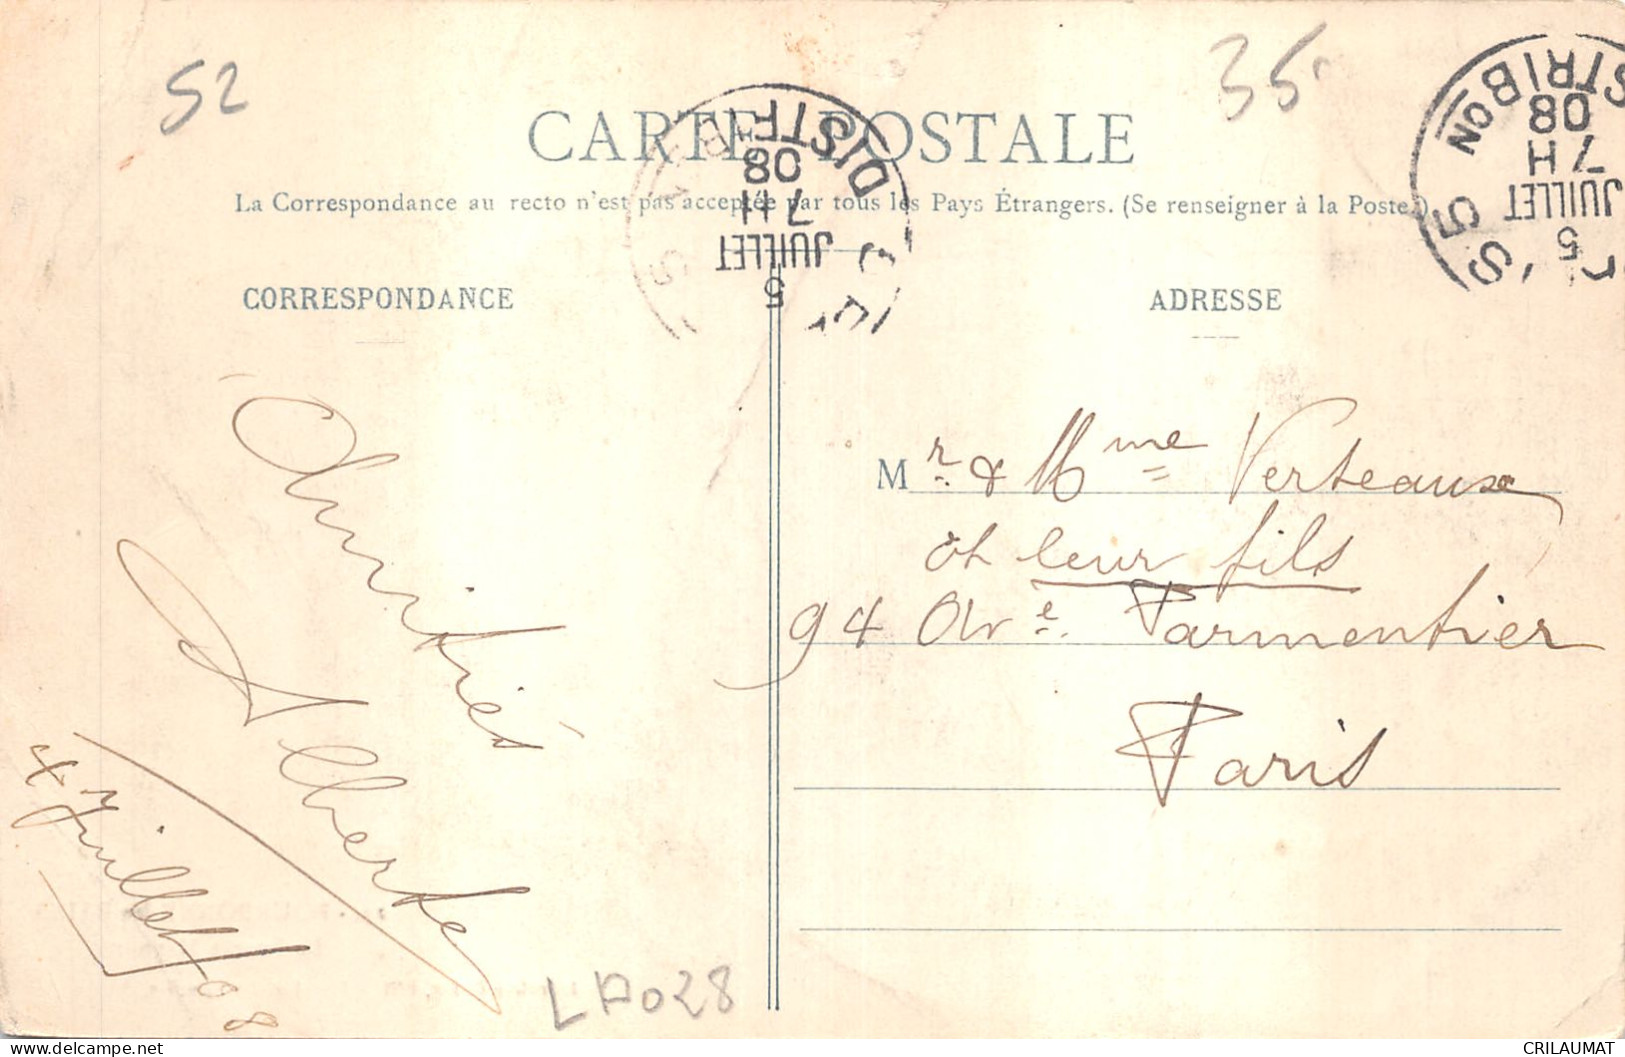 52
35
CARTE POSTALE
La Correspondance au recto n'est pas acceptée par tous les Pays Étrangers. (Se renseigner à la Poste.)
DISTR
08
7 H
JUILLET
5
DISTRIBON
08
7 H
JUILLET
5
CORRESPONDANCE
ADRESSE
Amitiés
Alberte
4 Juillet 08
Mr & Mme Verteaux
et leur fils
94 Ave Parmentier
Paris
LA028
CRILAUMAT